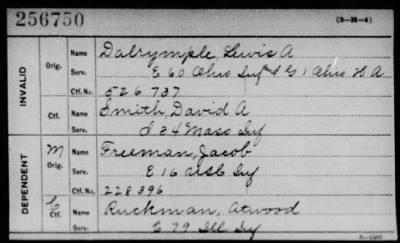 256750 (3—M—4)
INVALID
Orig. Name Dalrymple, Lewis A
Serv. E 60 Ohio Inf & G 1 Ohio H A
Ctf. No. 526737
Ctf. Name Smith, David A
Serv. I 24 Mass Inf
DEPENDENT
M Orig. Name Freeman, Jacob
Serv. E 16 USC Inf
Ctf. No. 228396
C Ctf. Name Ruckman, Atwood
Serv. C 79 Ill Inf